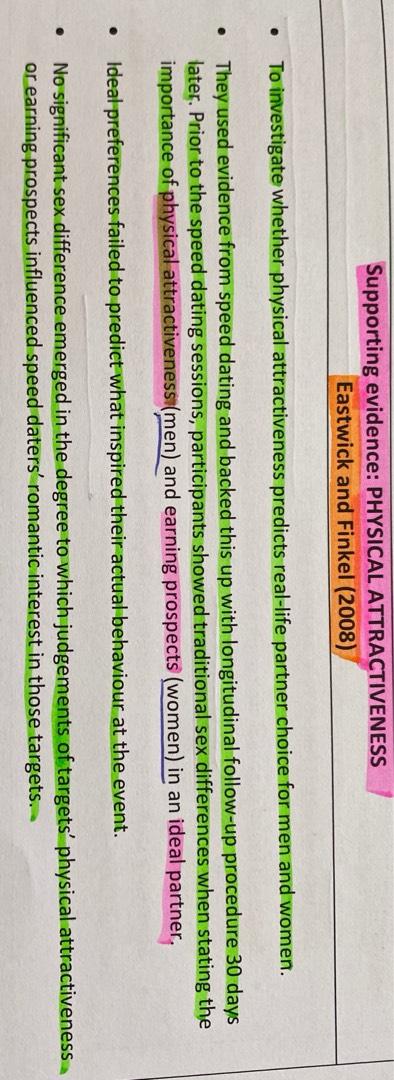 Supporting evidence: PHYSICAL ATTRACTIVENESS
Eastwick and Finkel (2008)
• To investigate whether physical attractiveness predicts real-life partner choice for men and women.
• They used evidence from speed dating and backed this up with longitudinal follow-up procedure 30 days
later. Prior to the speed dating sessions, participants showed traditional sex differences when stating the
importance of physical attractiveness (men) and earning prospects (women) in an ideal partner,
• Ideal preferences failed to predict what inspired their actual behaviour at the event.
• No significant sex difference emerged in the degree to which judgements of targets’ physical attractiveness
or earning prospects influenced speed daters’ romantic interest in those targets.